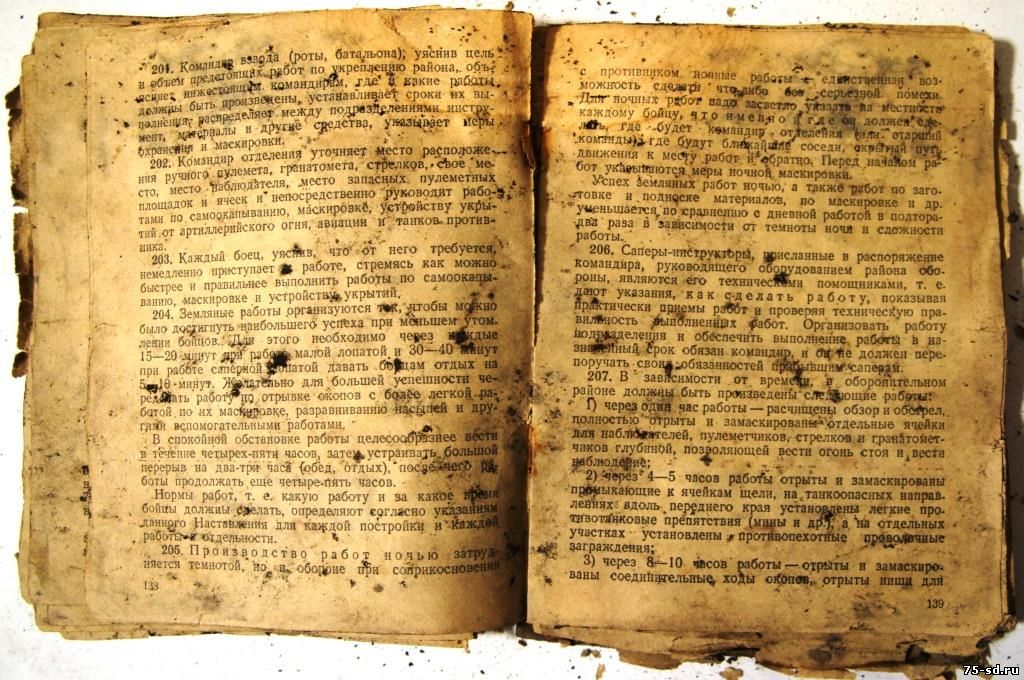 201. Командир взвода (роты, батальона), уяснив цель
и объем предстоящих работ по укреплению района, объ-
ясняет нижестоящим командирам, где и какие работы
должны быть произведены, устанавливает сроки их вы-
полнения, распределяет между подразделениями инстру-
мент, материалы и другие средства, указывает меры
охранения и маскировки.
202. Командир отделения уточняет место расположе-
ния ручного пулемета, гранатомета, стрелков, свое ме-
сто, место наблюдателя, место запасных пулеметных
площадок и ячеек и непосредственно руководит рабо-
тами по самоокапыванию, маскировке, устройству укры-
тий от артиллерийского огня, авиации и танков против-
ника.
203. Каждый боец, уяснив, что от него требуется,
немедленно приступает к работе, стремясь как можно
быстрее и правильнее выполнить работы по самоокапы-
ванию, маскировке и устройству укрытий.
204. Земляные работы организуются так, чтобы можно
было достигнуть наибольшего успеха при меньшем утом-
лении бойцов. Для этого необходимо через каждые
15—20 минут при работе малой лопатой и 30—40 минут
при работе саперной лопатой давать бойцам отдых на
5—10 минут. Желательно для большей успешности че-
редовать работу по отрывке окопов с более легкой ра-
ботой по их маскировке, разравниванию насыпей и дру-
гими вспомогательными работами.
В спокойной обстановке работы целесообразнее вести
в течение четырех-пяти часов, затем устраивать большой
перерыв на два-три часа (обед, отдых), после чего ра-
боты продолжать еще четыре-пять часов.
Нормы работ, т. е. какую работу и за какое время
бойцы должны сделать, определяют согласно указаниям
данного Наставления для каждой постройки и каждой
работы в отдельности.
205. Производство работ ночью затруд-
няется темнотой, но в обороне при соприкосновении
138
с противником ночные работы — единственная воз-
можность сделать что-либо без серьезной помехи.
Для ночных работ надо засветло указать на местности
каждому бойцу, что именно и где он должен сде-
лать, где будет командир отделения (или старший
команды), где будут ближайшие соседи, скрытый путь
движения к месту работ и обратно. Перед началом ра-
бот указываются меры ночной маскировки.
Успех земляных работ ночью, а также работ по заго-
товке и подноске материалов, по маскировке и др.
уменьшается по сравнению с дневной работой в полтора-
два раза в зависимости от темноты ночи и сложности
работы.
206. Саперы-инструкторы, присланные в распоряжение
командира, руководящего оборудованием района обо-
роны, являются его техническими помощниками, т. е.
дают указания, как сделать работу, показывая
практически приемы работ и проверяя техническую пра-
вильность выполненных работ. Организовать работу
подразделения и обеспечить выполнение работы в на-
значенный срок обязан командир, и он не должен пере-
поручать своих обязанностей прибывшим саперам.
207. В зависимости от времени, в оборонительном
районе должны быть произведены следующие работы:
1) через один час работы — расчищены обзор и обстрел,
полностью отрыты и замаскированы отдельные ячейки
для наблюдателей, пулеметчиков, стрелков и гранатомет-
чиков глубиной, позволяющей вести огонь стоя и вести
наблюдение;
2) через 4—5 часов работы отрыты и замаскированы
примыкающие к ячейкам щели, на танкоопасных направ-
лениях вдоль переднего края установлены легкие про-
тивотанковые препятствия (мины и др.), а на отдельных
участках установлены противопехотные проволочные
заграждения;
3) через 8—10 часов работы — отрыты и замаскиро-
ваны соединительные ходы окопов, отрыты ниши для
139
75-sd.ru